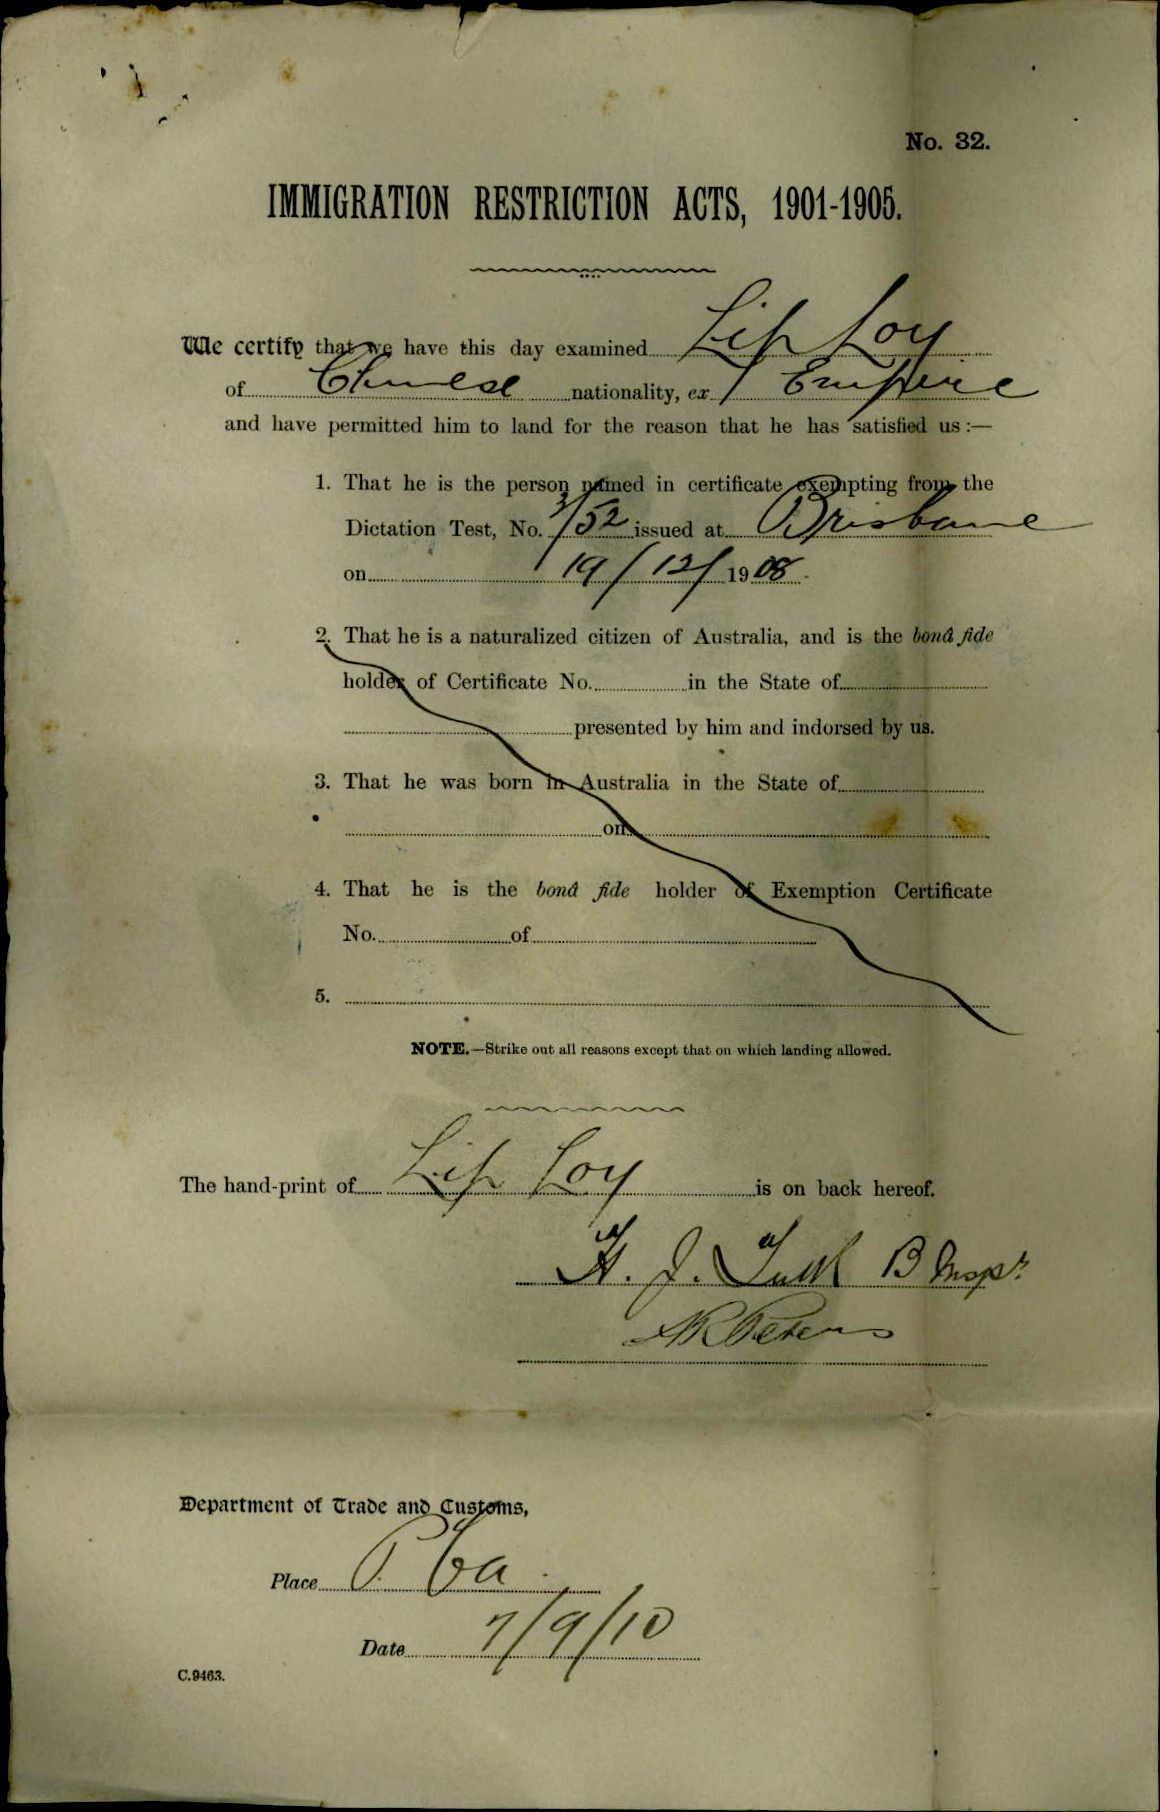 No. 32.
IMMIGRATION RESTRICTION ACTS, 1901-1905.
We certify that we have this day examined Lip Loy
of Chinese nationality, ex Empire
and have permitted him to land for the reason that he has satisfied us :—
1. That he is the person named in certificate exempting from the
Dictation Test, No. 3/52 issued at Brisbane
on 19/12/1908.
2. That he is a naturalized citizen of Australia, and is the bonâ fide
holder of Certificate No. in the State of
presented by him and indorsed by us.
3. That he was born in Australia in the State of
on
4. That he is the bonâ fide holder of Exemption Certificate
No. of
5.
NOTE.—Strike out all reasons except that on which landing allowed.
The hand-print of Lip Loy is on back hereof.
H. J. B Inspr.
Peters
Department of Trade and Customs,
Place
Date 7/9/10
C.9463.